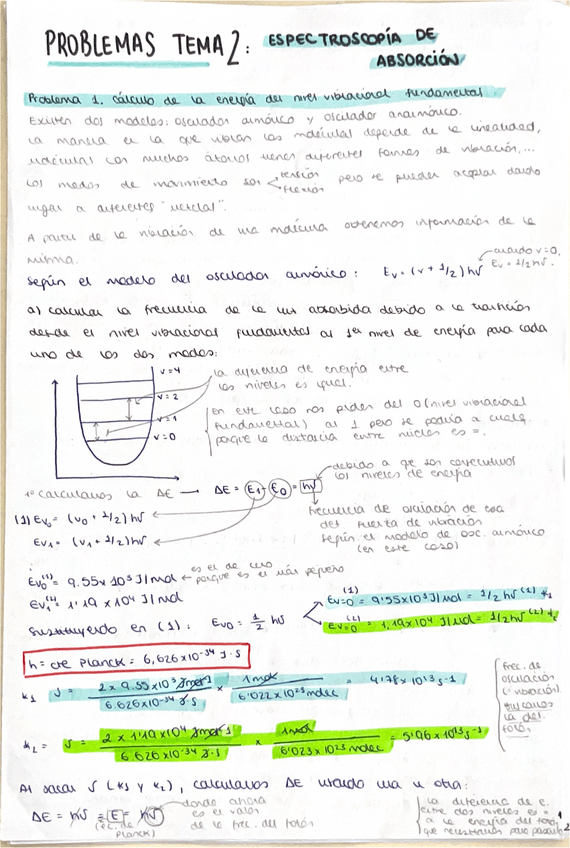 PROBLEMAS TEMA 2: ESPECTROSCOPÍA DE
ABSORCIÓN
Problema 1. cálculo de la energía del nivel vibracional fundamental.
Existen dos modelos: oscilador armónico y oscilador anarmónico.
La manera en la que vibran las moléculas depende de la linealidad,
moléculas con muchos átomos tienen diferentes formas de vibración,...
Los modos de movimiento son tensión
flexión
pero se pueden acoplar dando
lugar a diferentes "mezclas".
A partir de la vibración de una molécula obtenemos información de la
misma.
cuando v=0,
Ev = 1/2 hν.
Según el modelo del oscilador armónico: Ev = (v + 1/2) hν
a) calcular la frecuencia de la luz absorbida debido a la transición
desde el nivel vibracional fundamental al 1er nivel de energía para cada
uno de los dos modos:
v=4
v=2
v=1
v=0
la diferencia de energía entre
los niveles es igual.
en este caso nos piden del 0 (nivel vibracional
fundamental) al 1 pero se podría a cualq
porque la distancia entre niveles es =.
debido a que son consecutivos
los niveles de energía
1º calculamos la ΔE → ΔE = E1 - E0 = hν
(1) Ev0 = (v0 + 1/2) hν
Ev1 = (v1 + 1/2) hν
frecuencia de oscilación de
del de vibración
según el modelo de osc. armónico
(en este caso)
Ev0(1) = 9.55 x 10³ J/mol ← es el de cero
porque es el más pequeño
Ev1(2) = 1'19 x 10⁴ J/mol
Sustituyendo en (1): Ev0 = 1/2 hν
Ev=0 (1) = 9'55x10³ J/mol = 1/2 hν(1) k1
Ev=0 (2) = 1,19x10⁴ J/mol = 1/2 hν(2) k2
h = cte Planck = 6,626 x 10⁻³⁴ J·S
k1 ν = 2 x 9.55 x 10³ J mol⁻¹ / 6.626 x 10⁻³⁴ J·S x 1 mol / 6'022 x 10²³ molec = 4'78 x 10¹³ s⁻¹
k2 = ν = 2 x 1'19 x 10⁴ J mol⁻¹ / 6.626 x 10⁻³⁴ J·S x 1 mol / 6'023 x 10²³ molec = 5'96 x 10¹³ s⁻¹
frec. de
oscilación
(vibración).
buscamos
la del
fotón
Al sacar ν (k1 y k2), calculamos ΔE usando una u otra:
ΔE = hν = E = hν
(ec. de
Planck)
donde ahora
es el valor
de la frec. del fotón
la diferencia de E.
entre dos niveles es =
a la energía del fotón
que necesitamos para pasar
1
2